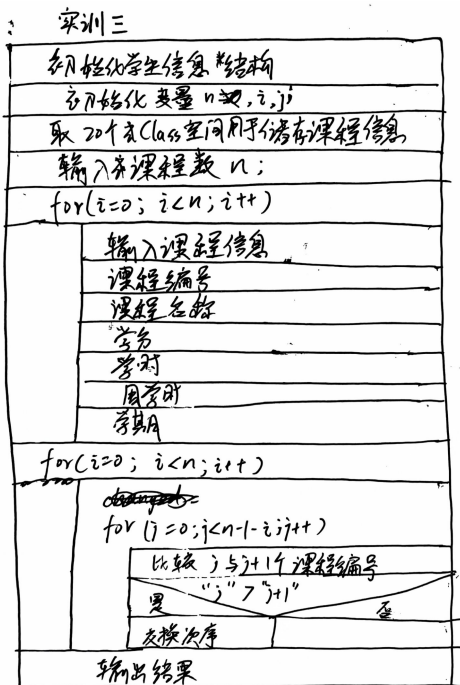 实训三
初始化学生信息结构
初始化变量 n, i, j;
取 20个Class空间用于储存课程信息
输入课程数 n;
for(i=0; i<n; i++)
输入课程信息
课程编号
课程名称
学分
学时
周学时
学期
for(i=0; i<n; i++)
for (j=0; j<n-1-i; j++)
比较 j 与 j+1个课程编号
"j" > "j+1"
是
否
交换次序
输出结果